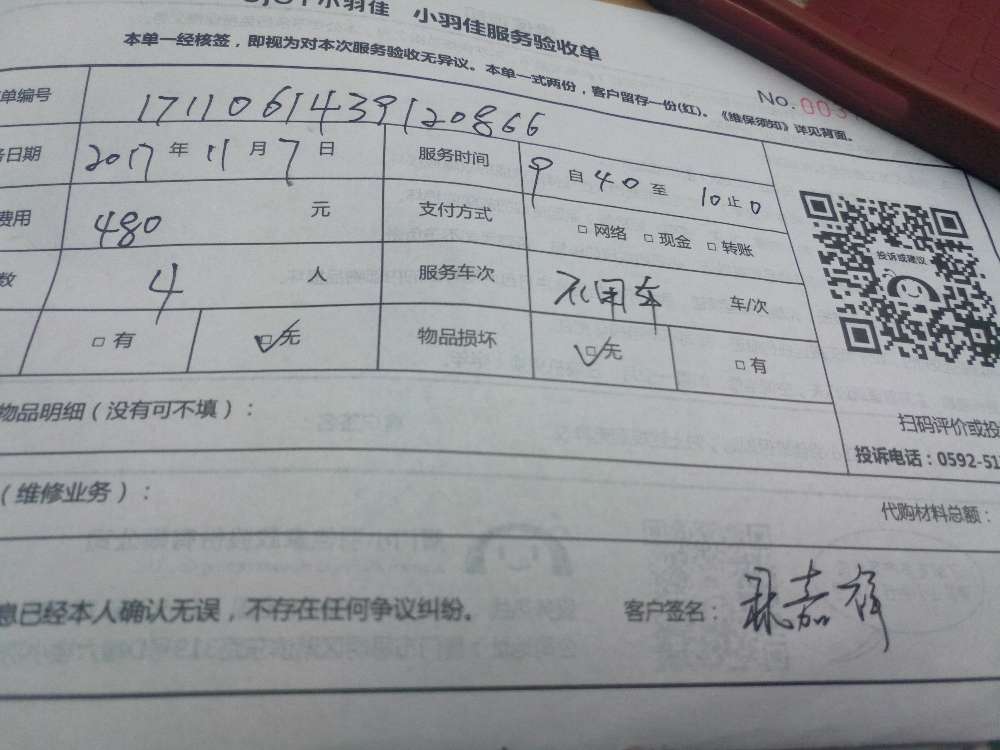 小羽佳 小羽佳服务验收单
本单一经核签，即视为对本次服务验收无异议。本单一式两份，客户留存一份(红)。《维保须知》详见背面。
No.003
单编号 1711061439120866
务日期 2017 年 11 月 7 日 服务时间 9 自 40 至 10 止 0
费用 480 元 支付方式 □ 网络 □ 现金 □ 转账
数 4 人 服务车次 不用车 车/次
□ 有 □ 无 物品损坏 □ 无 □ 有
投诉或建议
扫码评价或投
投诉电话：0592-51
物品明细（没有可不填）：
（维修业务）：
代购材料总额：
息已经本人确认无误，不存在任何争议纠纷。 客户签名：